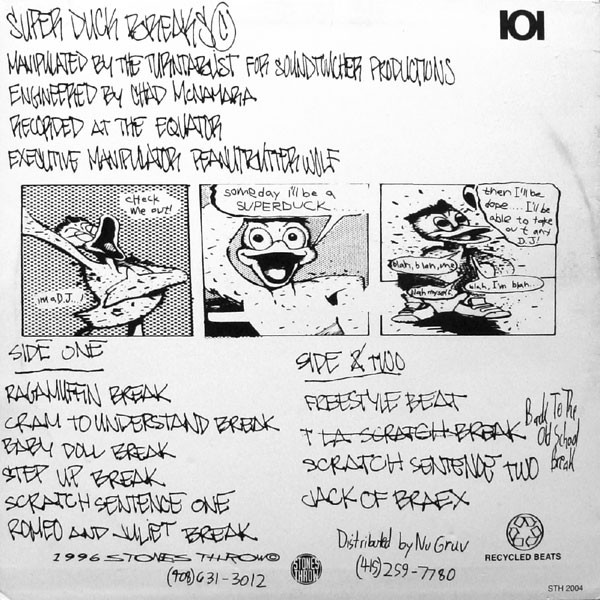 SUPER DUCK BREAKS ©
101
MANIPULATED BY THE TURNTABLIST FOR SOUNDTWCHER PRODUCTIONS
ENGINEERED BY CHAD McNAMARA
RECORDED AT THE EQUATOR
EXECUTIVE MANIPULATOR PEANUTBUTTERWOLF
CHECK me out!
im a D.J...!
someday i'll be a
SUPERDUCK.....
then I'll be
dope.... I'll be
able to take
out any
D.J!
blah, blah, me
blah myself.
blah, I'm blah.
SIDE ONE
RAGAMUFFIN BREAK
CRAM TO UNDERSTAND BREAK
BABY DOLL BREAK
STEP UP BREAK
SCRATCH SENTENCE ONE
ROMEO AND JULIET BREAK
SIDE & TWO
FREESTYLE BEAT
T LA SCRATCH BREAK
Back To The
Old School
Break
SCRATCH SENTENCE TWO
JACK OF BRAEX
1996 STONES THROW ©
(408) 631-3012
STONES
THROW
Distributed by Nu Gruv
(415) 259-7780
RECYCLED BEATS
STH 2004